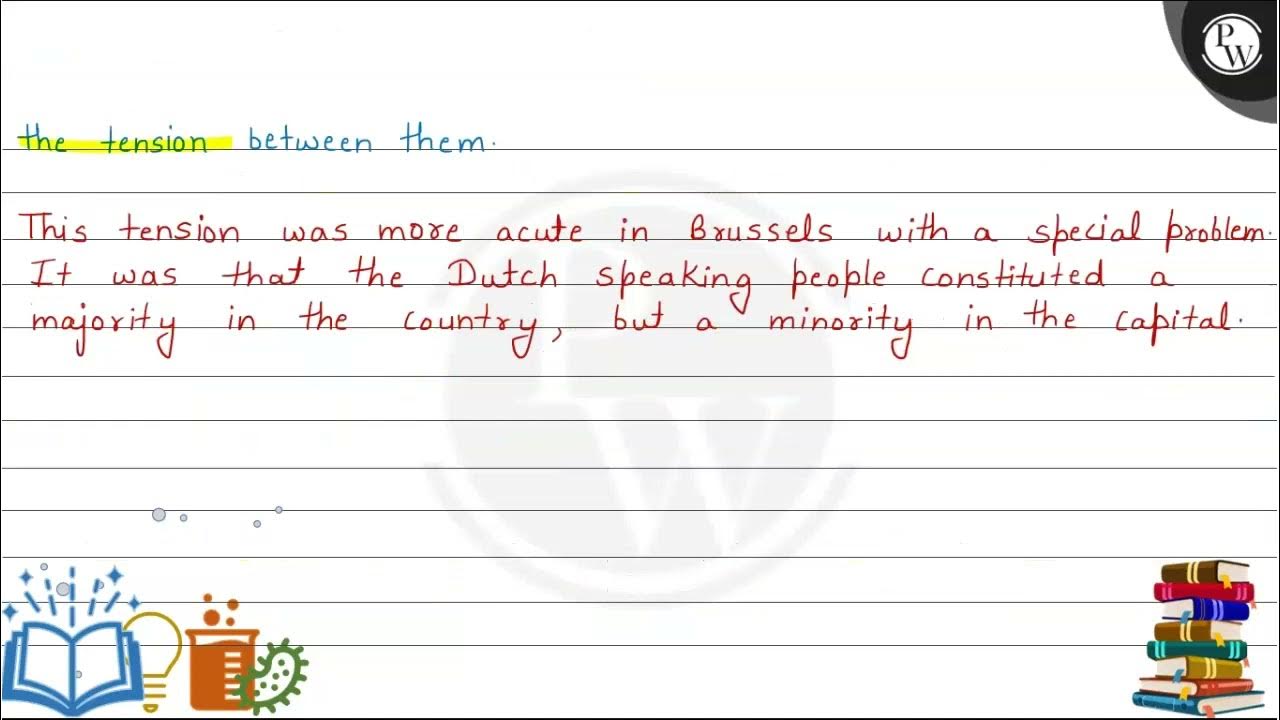 PW
the tension between them.
This tension was more acute in Brussels with a special problem.
It was that the Dutch speaking people constituted a
majority in the country, but a minority in the capital.
PW